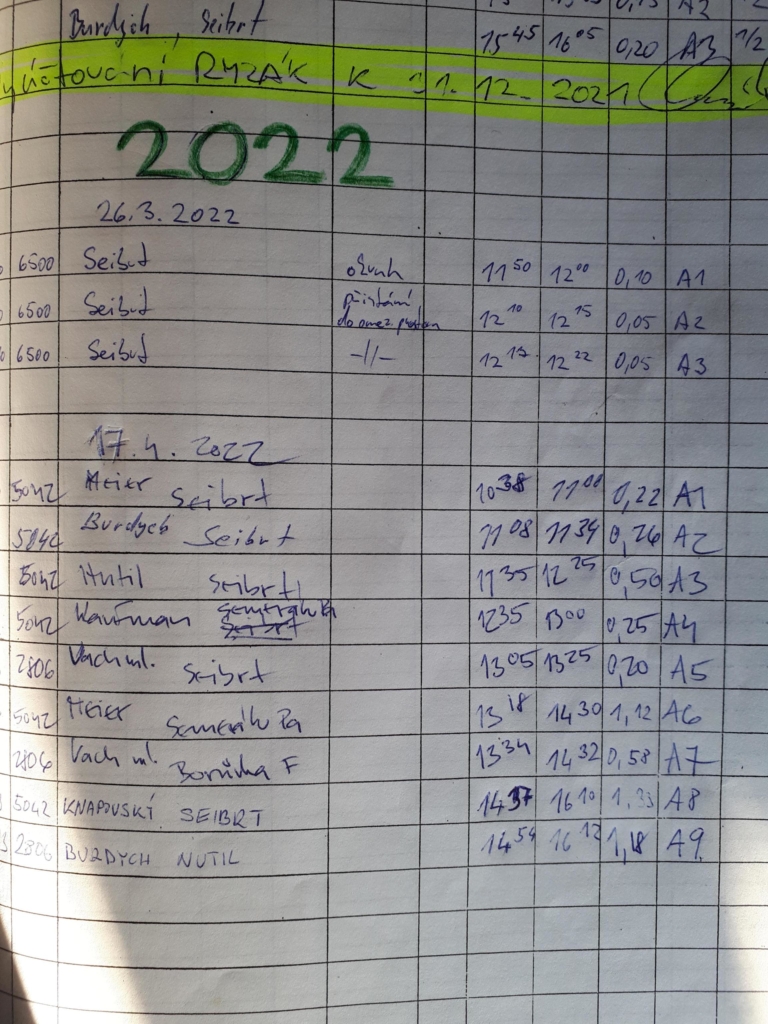 Burdych, Seibrt 15 45 16 05 0,20 A3 1/2
RYZÁK K 31. 12. 2021
2022
26.3.2022
6500 Seibrt 11 50 12 00 0,10 A1
6500 Seibrt přistání do omez. 12 10 12 15 0,05 A2
6500 Seibrt -//- 12 17 12 22 0,05 A3
17.4. 2022
5042 Meier Seibrt 10 38 11 00 0,22 A1
Burdych Seibrt 11 08 11 34 0,26 A2
5042 Nutil Seibrt 11 35 12 25 0,50 A3
5042 Kaufman 12 35 13 00 0,25 A4
2806 Vach ml. Seibrt 13 05 13 25 0,20 A5
5042 Meier 13 18 14 30 1,12 A6
2806 Vach ml. F 13 34 14 32 0,58 A7
5042 KNAPOVSKÍ SEIBRT 14 37 16 10 1,33 A8
2806 BURDYCH NUTIL 14 54 16 12 1,18 A9